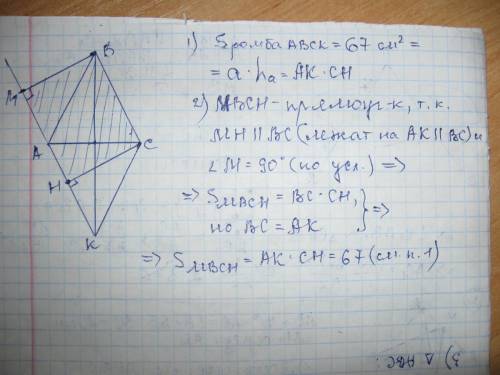 В
М
А
С
Н
К
1) Sромба ABCK = 67 см² =
= a · hₐ = AK · CH
2) MBCH - прямоуг-к, т. к.
MH || BC (лежат на AK || BC) и
∠M = 90° (по усл.) =>
=> S MBCH = BC · CH,
но BC = AK } =>
=> S MBCH = AK · CH = 67 (см. п. 1)
3) Δ ABC: